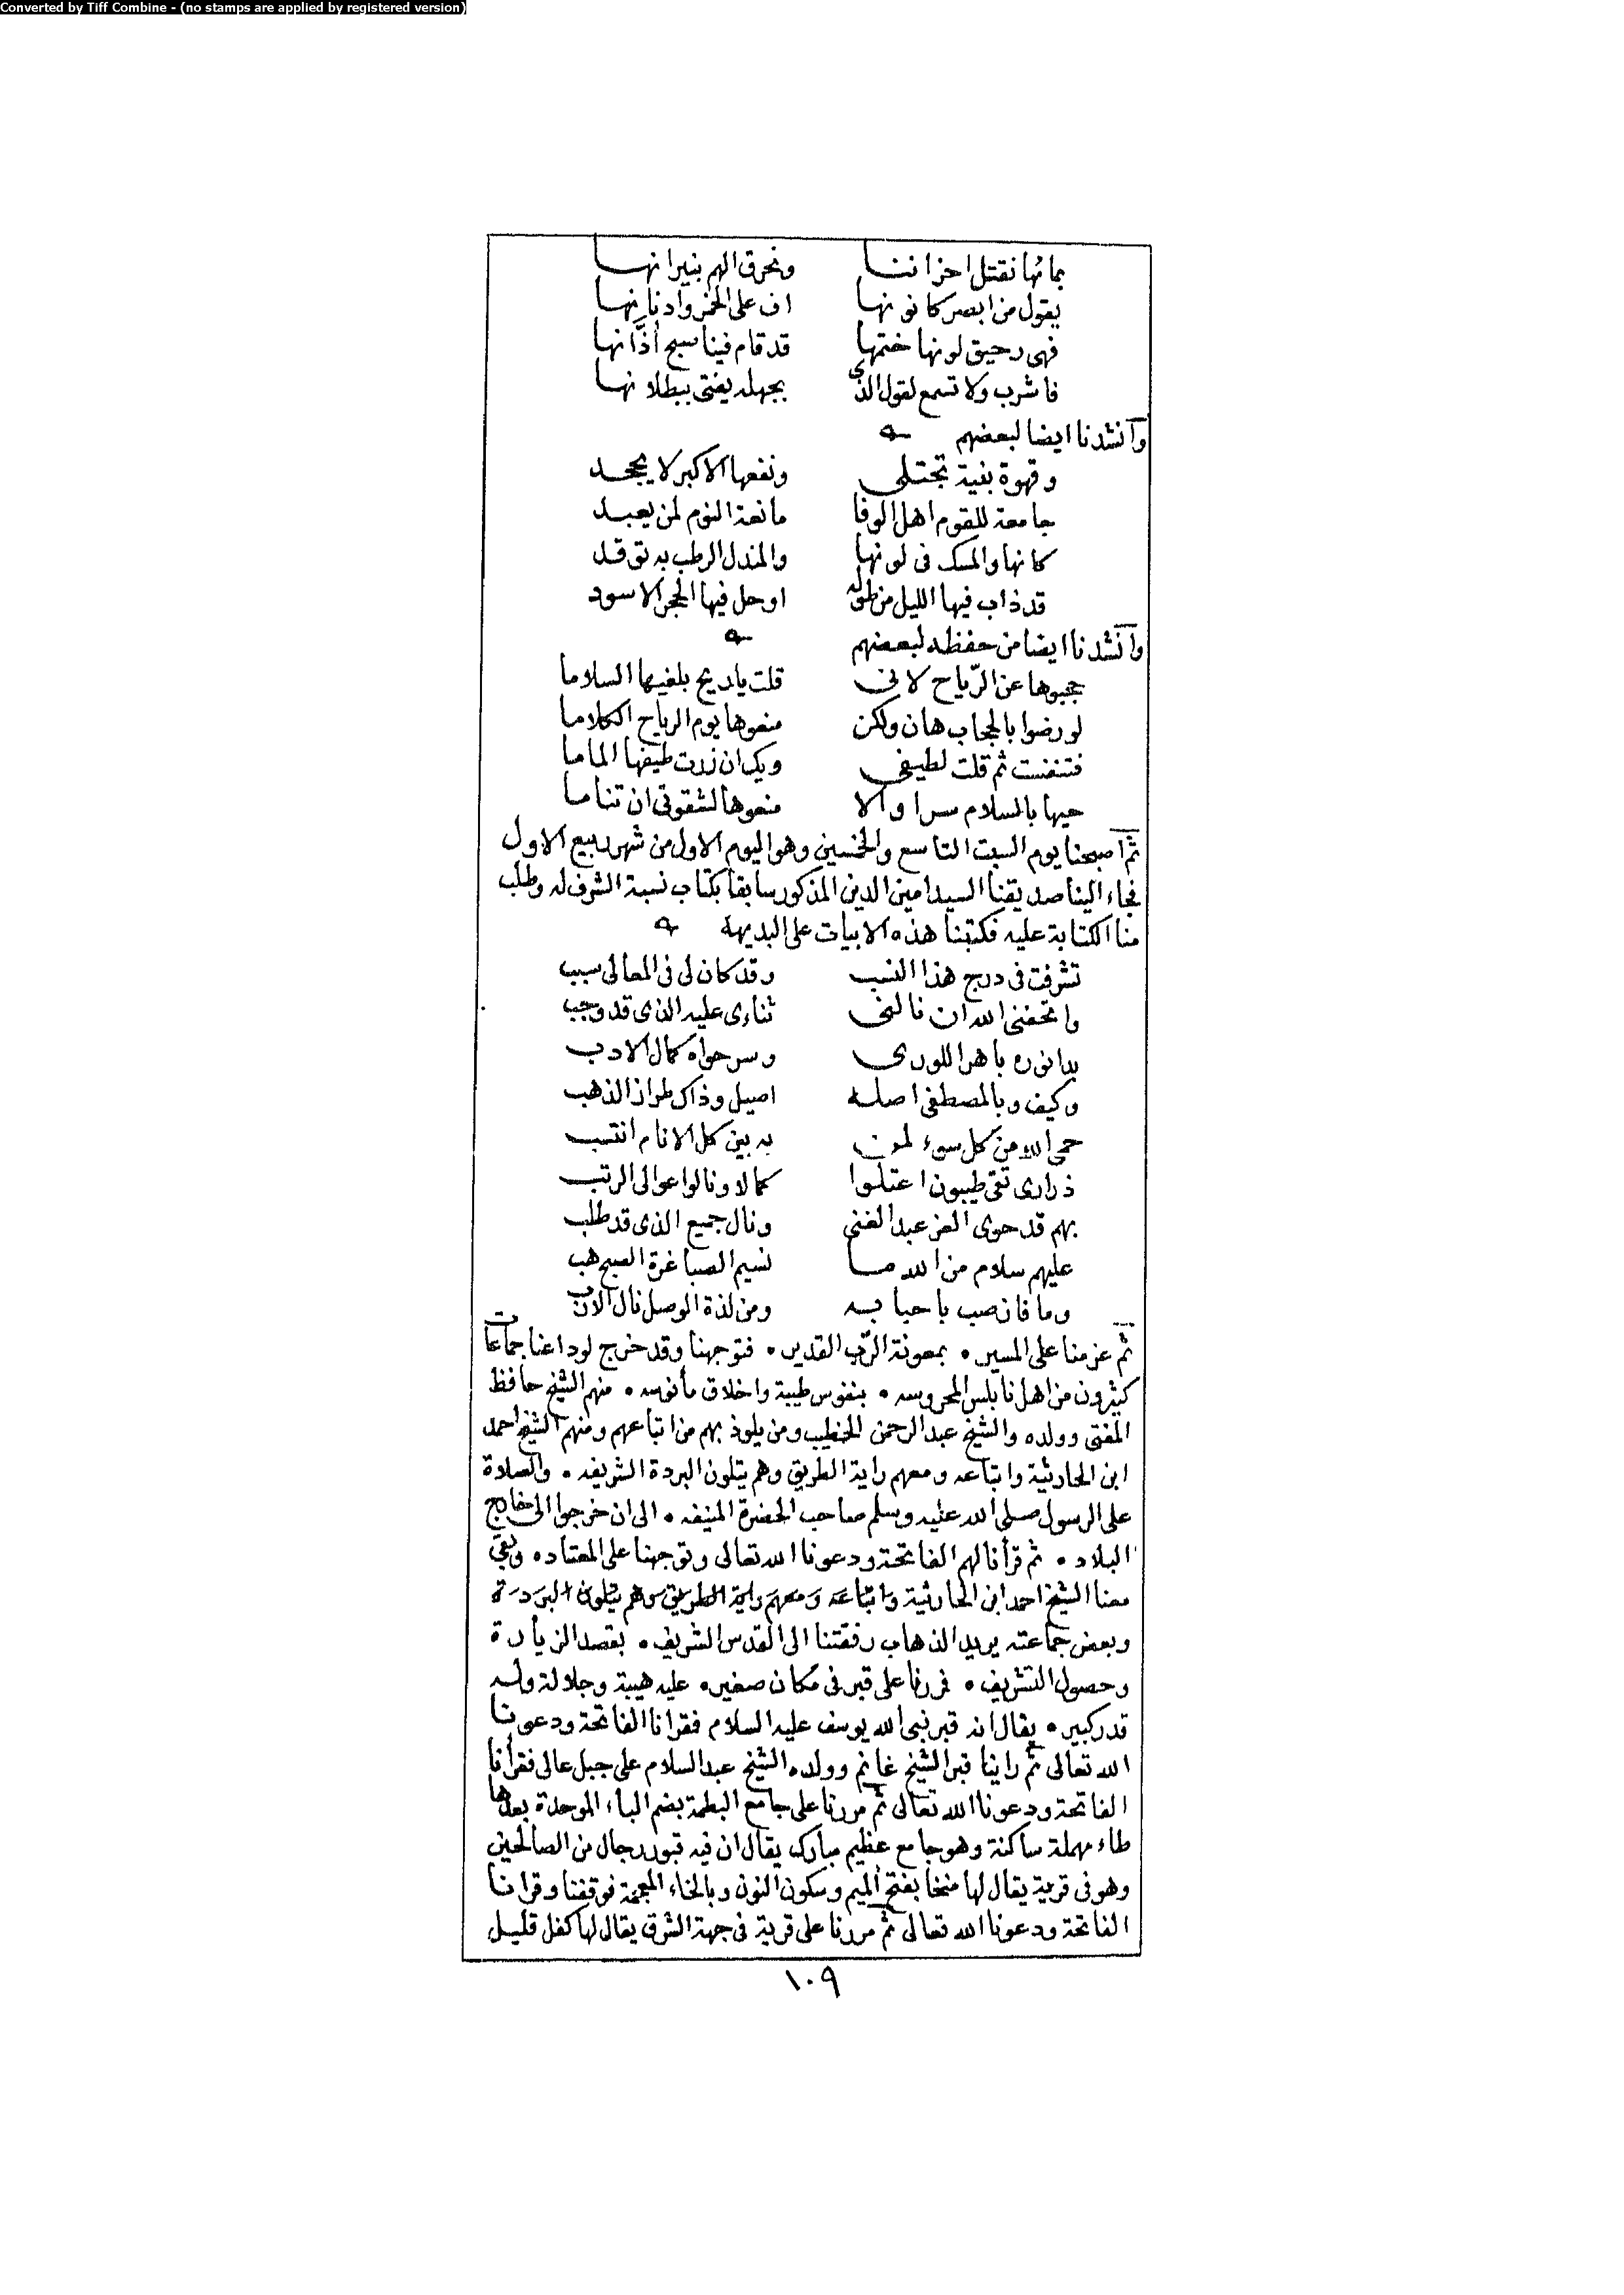 Converted by Tiff Combine - (no stamps are applied by registered version)
بمائها نقتل احزاننا ونحرق الهم بنيرانها
يقول من ابصر كانونها اف على الخمر وادنانها
فهى رحيق لونها ختمها قد قام فينا سبح أذانها
فاشرب ولا تسمع لقول الذى بجهله يفتى ببطلانها
وانشدنا ايضا لبعضهم
وقهوة بنية تجتلى ونفعها الاكبر لا يجحد
جامعة للقوم اهل الوفا مانعة النوم لمن يعبد
كانها والمسك فى لونها والمندل الرطب به توقد
قد ذاب فيها الليل من طوله اوحل فيها الحجر الاسود
وانشدنا ايضا من حفظه لبعضهم
حجبوها عن الرّياح لانى قلت ياريح بلغيها السلاما
لو رضوا بالحجاب هان ولكن منعوها يوم الرياح الكلاما
فتنفست ثم قلت لطيفى ويك ان زرت طيفها الماما
حيها بالسلام سرا والا منعوها لشقوتى ان تناما
ثم اصبحنا يوم السبت التاسع والخمسين وهو اليوم الاول من شهر ربيع الاول
فجاء الينا صديقنا السيد امين الدين المذكور سابقا بكتاب نسبة الشرف له وطلب
منا الكتابة عليه فكتبنا هذه الابيات على البديهة
تشرفت فى درج هذا النسب وقد كان لى فى المعالى سبب
واتحفنى الله ان نالنى ثناءى عليه الذى قد وجب
بدا نوره باهرا للورى وسر حواه كمال الادب
وكيف وبالمصطفى اصله اصيل وذاك طراز الذهب
حمى الله من كل سوء لمن به بين كل الانام انتسب
ذرارى تقى طيبون اعتلوا كمالا ونالوا عوالى الرتب
بهم قد حوى العز عبد الغنى ونال جميع الذى قد طلب
عليهم سلام من الله ما نسيم الصبا غرة الصبح هب
وما فاز صب باحبابه ومن لذة الوصل نال الارب
ثم عزمنا على المسير • بمعونة الرّب القدير • فتوجهنا وقد خرج لوداعنا جماعات
كثيرون من اهل نابلس المحروسه • بنفوس طيبة واخلاق مأنوسه • منهم الشيخ حافظ
المفتى وولده والشيخ عبد الرحمن الخطيب ومن يلوذ بهم من اتباعهم ومنهم الشيخ احمد
ابن الحارثية واتباعه ومعهم راية الطريق وهم يتلون البردة الشريفه • والصلاة
على الرسول صلى الله عليه وسلم صاحب الحضرة المنيفه • الى ان خرجوا الى خارج
البلاد • ثم قرأنا لهم الفاتحة ودعونا الله تعالى وتوجهنا على المعتاد • وبقى
معنا الشيخ احمد ابن الحارثية واتباعه ومعهم راية الطريق وهم يتلون البردة
وبعض جماعته يريد الذهاب رفقتنا الى القدس الشريف • بقصد الزيارة
وحصول التشريف • فمررنا على قبر فى مكان صغير • عليه هيبة وجلالة وله
قدر كبير • يقال انه قبر نبى الله يوسف عليه السلام فقرانا الفاتحة ودعونا
الله تعالى ثم راينا قبر الشيخ غانم وولده الشيخ عبد السلام على جبل عالى فقرأنا
الفاتحة ودعونا الله تعالى ثم مررنا على جامع البطمة بضم الباء الموحدة بعدها
طاء مهملة ساكنة وهو جامع عظيم مبارك يقال ان فيه قبور رجال من الصالحين
وهو فى قرية يقال لها منخا بفتح الميم وسكون النون وبالخاء المعجمة فوقفنا وقرانا
الفاتحة ودعونا الله تعالى ثم مررنا على قرية فى جهة الشرق يقال لها كفل قليل
١٠٩